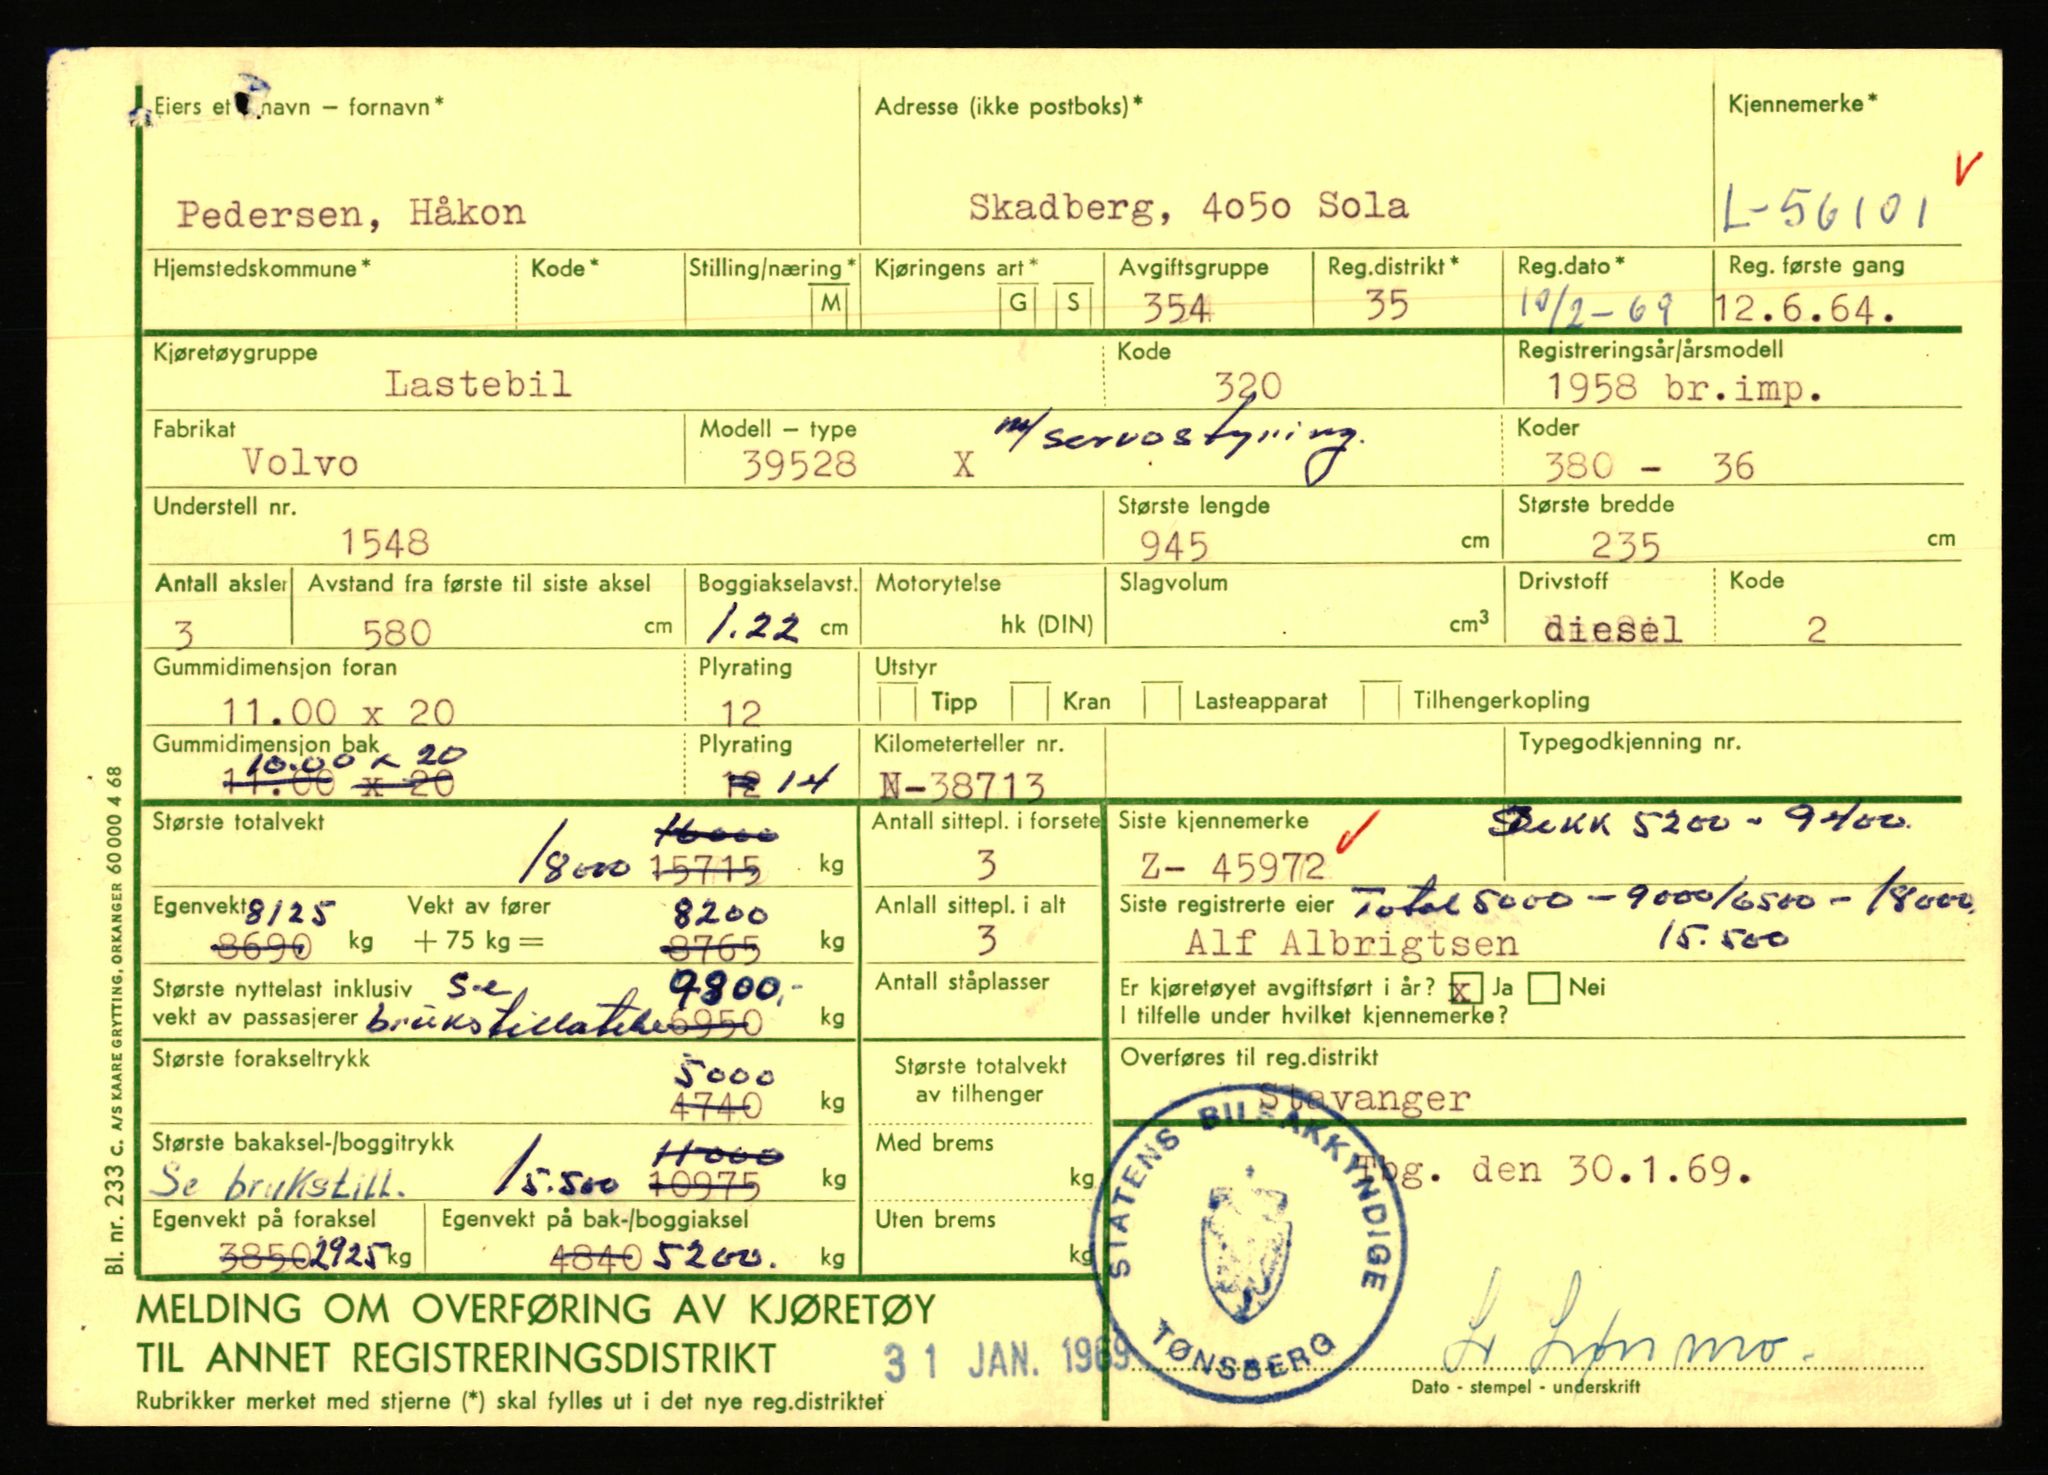 Eiers et navn – fornavn*
Adresse (ikke postboks)*
Kjennemerke*
Pedersen, Håkon
Skadberg, 4050 Sola
L-56101
Hjemstedskommune*
Kode*
Stilling/næring*
M
Kjøringens art*
G
S
Avgiftsgruppe
354
Reg.distrikt*
35
Reg.dato*
10/2-69
Reg. første gang
12.6.64.
Kjøretøygruppe
Lastebil
Kode
320
Registreringsår/årsmodell
1958 br.imp.
Fabrikat
Volvo
Modell – type
39528 X
m/servostyring.
Koder
380 - 36
Understell nr.
1548
Største lengde
945 cm
Største bredde
235 cm
Antall aksler
3
Avstand fra første til siste aksel
580 cm
Boggiakselavst.
1.22 cm
Motorytelse
hk (DIN)
Slagvolum
cm³
Drivstoff
diesel
Kode
2
Gummidimensjon foran
11.00 x 20
Plyrating
12
Utstyr
Tipp
Kran
Lasteapparat
Tilhengerkopling
Gummidimensjon bak
10.00 x 20
11.00 x 20
Plyrating
12 14
Kilometerteller nr.
N-38713
Typegodkjenning nr.
Største totalvekt
16000
18000 15715 kg
Antall sittepl. i forsete
3
Siste kjennemerke
Z- 45972
Dekk 5200 - 9400.
Egenvekt 8125
8690 kg
Vekt av fører
+ 75 kg =
8200
8765 kg
Anlall sittepl. i alt
3
Siste registrerte eier
Total 5000 - 9000/6500 - 18000.
Alf Albrigtsen
15.500
Største nyttelast inklusiv
vekt av passasjerer
Se
brukstillatelse
9800.-
6950 kg
Antall ståplasser
Er kjøretøyet avgiftsført i år? x Ja Nei
I tilfelle under hvilket kjennemerke?
Største forakseltrykk
5000
4740 kg
Største totalvekt
av tilhenger
Overføres til reg.distrikt
Stavanger
Største bakaksel-/boggitrykk
Se brukstill.
11000
15.500 10975 kg
Med brems
kg
Tbg. den 30.1.69.
Egenvekt på foraksel
3850 2925 kg
Egenvekt på bak-/boggiaksel
4840 5200. kg
Uten brems
kg
STATENS BILSAKKYNDIGE
TØNSBERG
MELDING OM OVERFØRING AV KJØRETØY
TIL ANNET REGISTRERINGSDISTRIKT
31 JAN. 1969
Rubrikker merket med stjerne (*) skal fylles ut i det nye reg.distriktet
Dato - stempel - underskrift
Bl. nr. 233 c. A/S KAARE GRYTTING, ORKANGER 60000 4 68